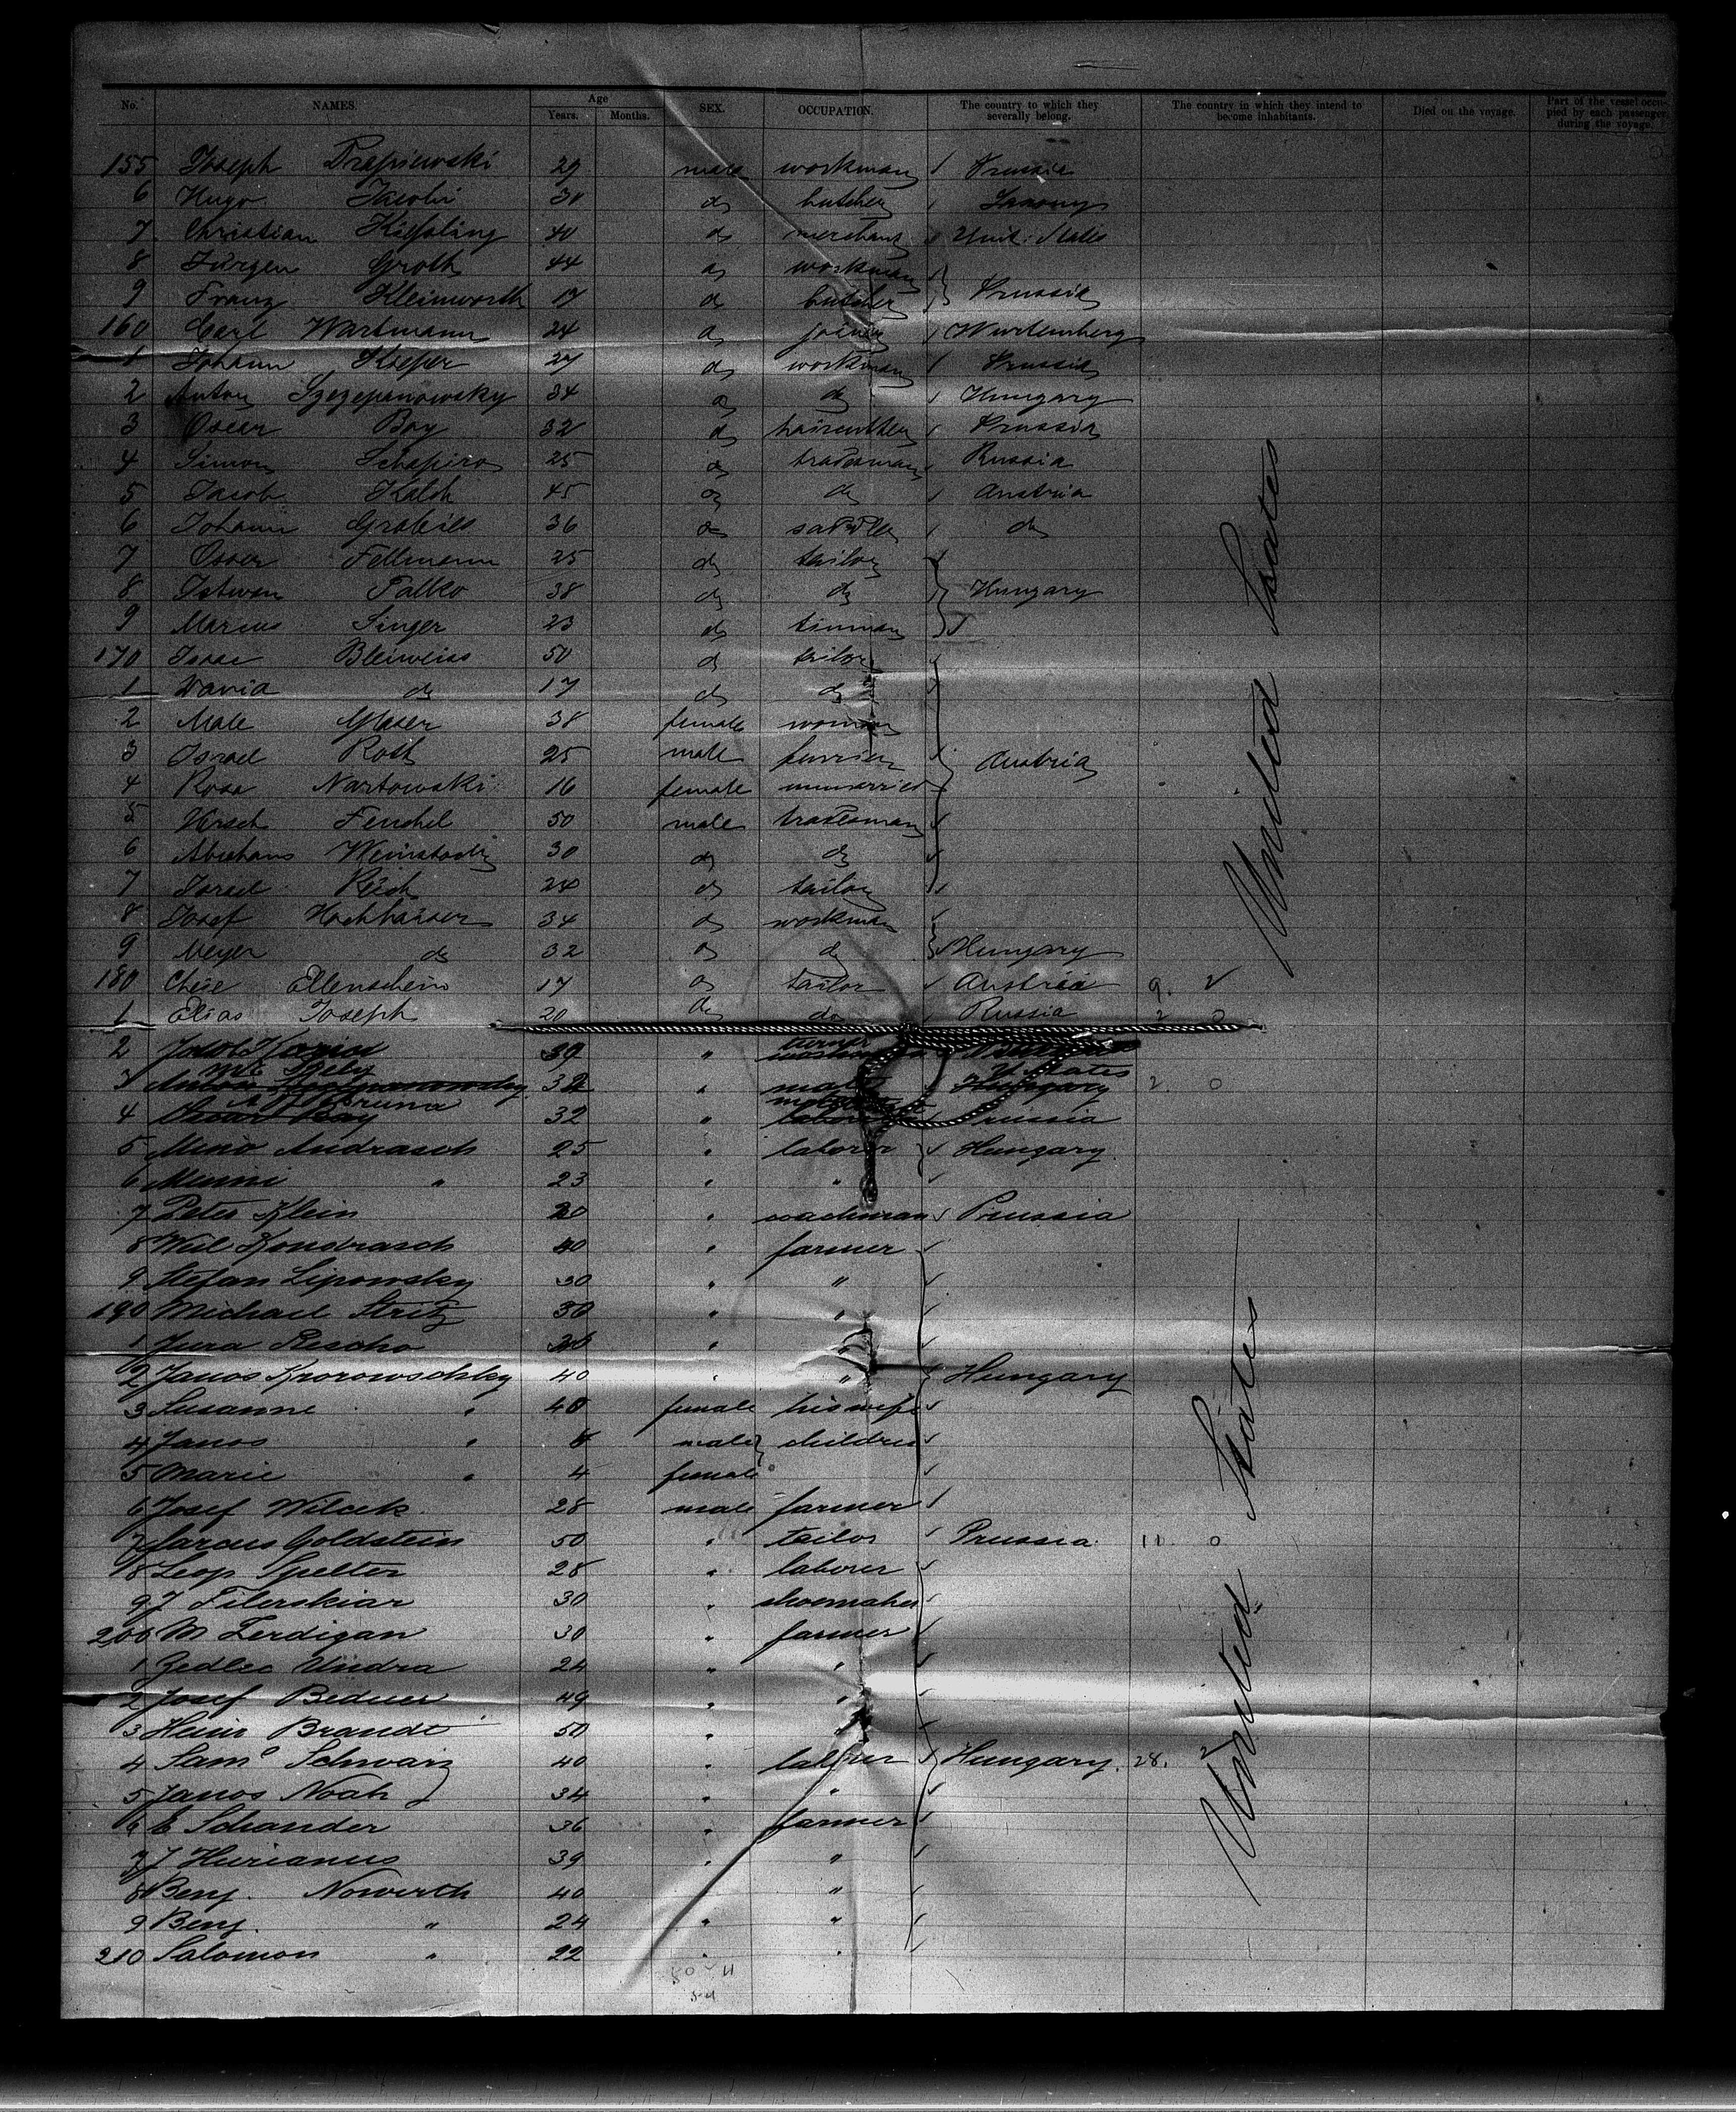 No. NAMES. Age Years. Months. SEX. OCCUPATION. The country to which they severally belong. The country in which they intend to become inhabitants. Died on the voyage. Part of the vessel occupied by each passenger during the voyage.
155 Joseph 29 male workman Prussia
6 Hugo Jacobi 30 do butcher Saxony
7 Christian Kiessling 40 do merchant Unit. States
8 Jürgen Groth 44 do workman
9 Franz Kleinworth 17 do butcher Prussia
160 Carl Wartmann 24 do joiner Wurtemberg
1 Johann Kieper 27 do workman Prussia
2 Anton Szczepanowsky 34 do do Hungary
3 Oscar Bay 32 do haircutter Prussia
4 Simon Schapiro 25 do tradesman Russia
5 Jacob Kalch 45 do do Austria
6 Johann 36 do saddler do
7 Osser Fellmann 25 do tailor
8 Istwan Palko 38 do do Hungary
9 Marcus Singer 23 do tinman
170 Isaac Bleiweiss 50 do tailor
1 David do 17 do do
2 Male Glaser 38 female woman
3 Israel Roth 25 male furrier Austria
4 Rosa Nartowski 16 female unmarried
5 Hersch Fenchel 50 male tradesman
6 Abraham Weinstock 30 do do
7 Israel Reich 24 do tailor
8 Josef Hochhauser 34 do workman
9 Meyer do 32 do do Hungary
180 Ellenschein 17 do tailor Austria 9. 2
1 Elias Joseph 20 do do Russia 2 0
2 39 "
3 Wm Selby 32 " U. States 2. 0
4 32 " Prussia
5 Andrasch 25 " laborer Hungary
6 " 23 " "
7 Peter Klein 20 " coachman Prussia
8 Kondrasch 40 " farmer
9 Stefan Lipowsky 30 " "
190 Michael Stritz 30 " "
1 Jura Rescho " "
2 Janos 40 " " Hungary
3 Susanne " 40 female his wife
4 Janos " 8 male children
5 Marie " 4 female
6 Josef Wilcek 28 male farmer
7 Marcus Goldstein 50 " tailor Prussia 11. 0
8 Leop Spelter 28 " laborer
9 J Filerskiar 30 " shoemaker
200 M Zerdigan 30 " farmer
1 Zedlec Undra 24 " "
2 Josef Beduer 49 " "
3 Heinr Brandt 50 "
4 Saml Schwarz 40 " laborer Hungary. 28. 2
5 Janos Noah 34 " "
6 E Schander 36 " farmer
7 J Hurianus 39 " "
8 Benj. Nowerth 40 " "
9 Benj. " 24 " "
210 Salomon " 22 " "
United States
United States